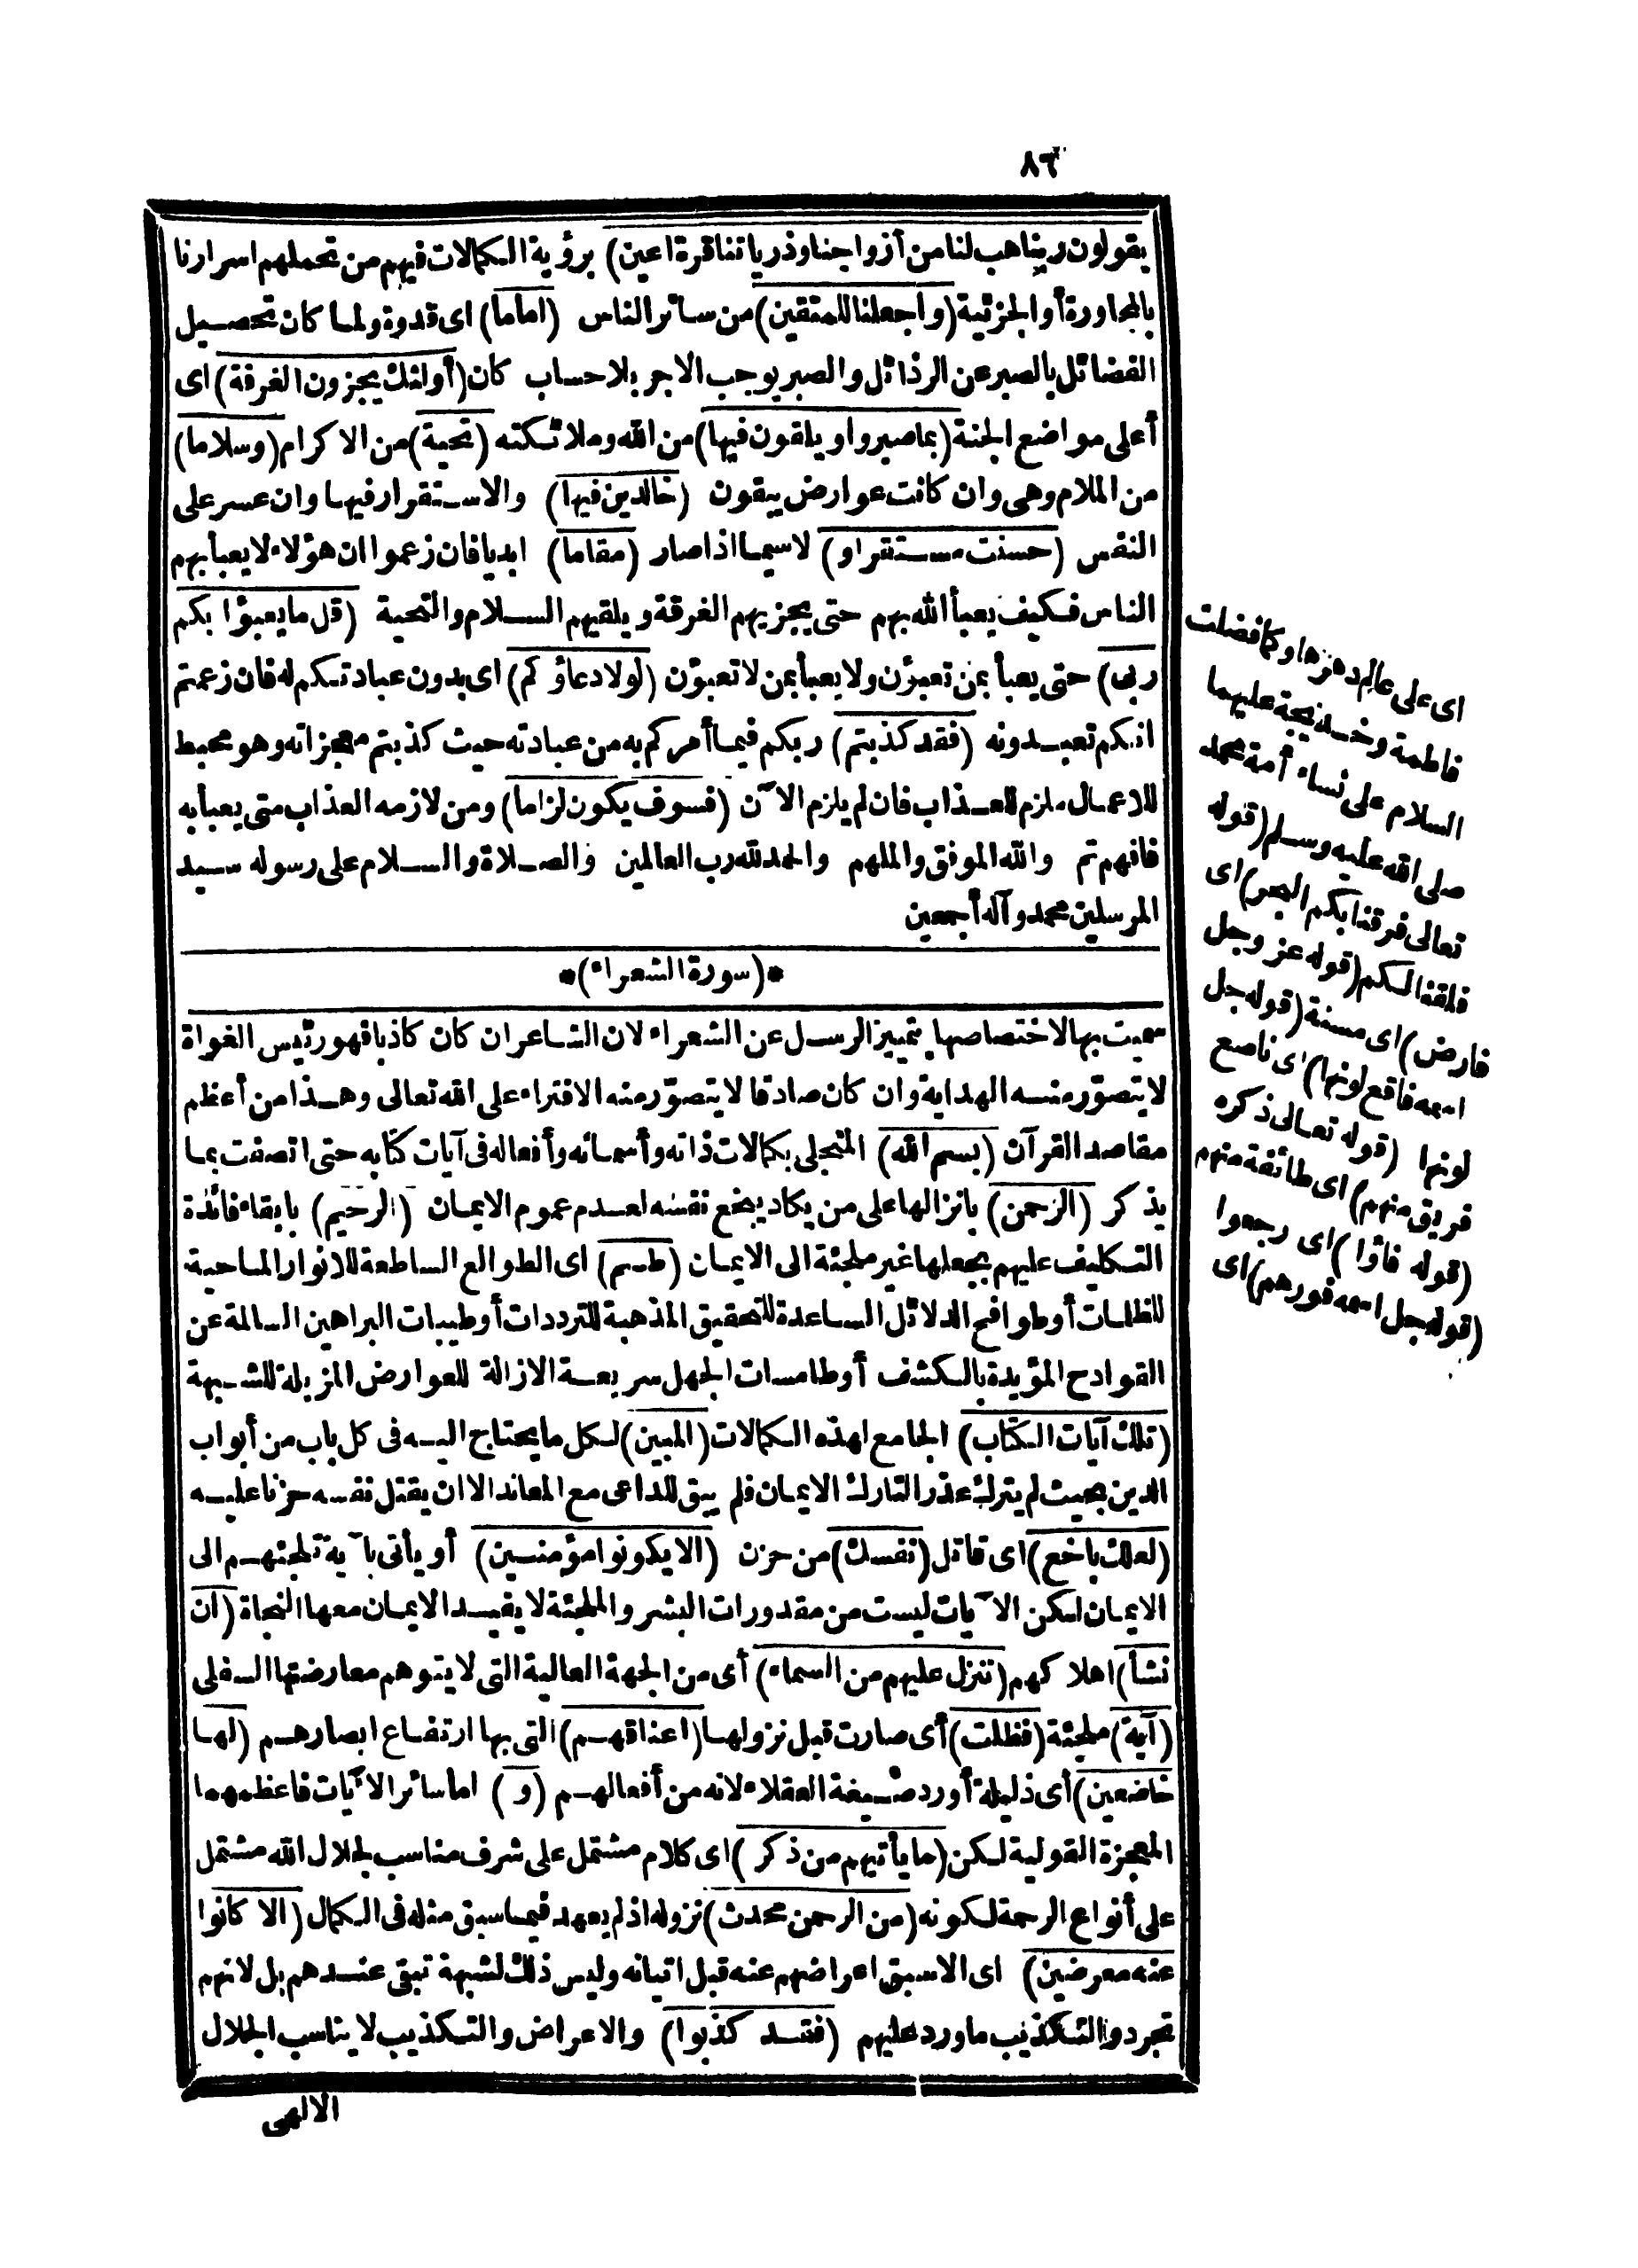 ٨٦
يقولون ربنا هب لنا من أزواجنا وذرياتنا قرة اعين) برؤية الكمالات فيهم من تحملهم اسرارنا
بالمجاورة أو الجزئية (واجعلنا للمتقين) من سائر الناس (اماما) اى قدوة ولما كان تحصيل
الفضائل بالصبر عن الرذائل والصبر يوجب الاجر بلا حساب كان (أولئك يجزون الغرفة) اى
أعلى مواضع الجنة (بما صبروا ويلقون فيها) من الله وملائكته (تحية) من الاكرام (وسلاما)
من الملام وهى وان كانت عوارض يبقون (خالدين فيها) والاستقرار فيها وان عسر على
النفس (حسنت مستقرا و) لاسيما اذا صار (مقاما) ابديا فان زعموا ان هؤلاء لا يعبأ بهم
الناس فكيف يعبأ الله بهم حتى يجزيهم الغرفة ويلقيهم السلام والتحية (قل ما يعبؤا بكم
ربى) حتى يعبأ بمن تعبؤن ولا يعبأ بمن لا تعبؤن (لولا دعاؤكم) اى بدون عبادتكم له فان زعمتم
انكم تعبدونه (فقد كذبتم) ربكم فيما أمركم به من عبادته حيث كذبتم معجزاته وهو محبط
للاعمال ملزم للعذاب فان لم يلزم الآن (فسوف يكون لزاما) ومن لازمه العذاب متى يعبأ به
فافهم تم والله الموفق والملهم والحمد لله رب العالمين والصلاة والسلام على رسوله سيد
المرسلين محمد وآله أجمعين
*(سورة الشعراء)*
سميت بها لاختصاصها بتمييز الرسل عن الشعراء لان الشاعر ان كان كاذبا فهو رئيس الغواة
لا يتصور منه الهداية وان كان صادقا لا يتصور منه الافتراء على الله تعالى وهذا من أعظم
مقاصد القرآن (بسم الله) المتجلى بكمالات ذاته وأسمائه وأفعاله فى آيات كتابه حتى اتصفت بما
يذكر (الرحمن) بانزالها على من يكاد يبخع نفسه لعدم عموم الايمان (الرحيم) بابقاء فائدة
التكليف عليهم بجعلها غير ملجئة الى الايمان (طسم) اى الطوالع الساطعة للانوار الماحية
للظلمات أو طوافح الدلائل المساعدة للتحقيق المذهبة للترددات أو طيبات البراهين السالمة عن
القوادح المؤيدة بالكشف أو طامسات الجهل سريعة الازالة للعوارض المزيلة للشبهة
(تلك آيات الكتاب) الجامع لهذه الكمالات (المبين) لكل ما يحتاج اليه فى كل باب من أبواب
الدين بحيث لم يترك عذرا لتارك الايمان فلم يبق للداعى مع المعاند الا ان يقتل نفسه حزنا عليه
(لعلك باخع) اى قاتل (نفسك) من حزن (الا يكونوا مؤمنين) أو يأتى بآية تلجئهم الى
الايمان لكن الآيات ليست من مقدورات البشر والملجئة لا يفيد الايمان معها النجاة (ان
نشأ) اهلاكهم (ننزل عليهم من السماء) أى من الجهة العالية التى لا يتوهم معارضتها السفلى
(آية) ملجئة (فظلت) أى صارت قبل نزولها (اعناقهم) التى بها ارتفاع ابصارهم (لها
خاضعين) أى ذليلة أورد صيغة العقلاء لانه من أفعالهم (و) اما سائر الآيات فاعظمها
المعجزة القولية لكن (ما يأتيهم من ذكر) اى كلام مشتمل على شرف مناسب لجلال الله مشتمل
على أنواع الرحمة لكونه (من الرحمن محدث) نزوله اذ لم يعهد فيما سبق مثله فى الكمال (الا كانوا
عنه معرضين) اى الا سبق اعراضهم عنه قبل اتيانه وليس ذلك لشبهة تبقى عندهم بل لانهم
تجردوا لتكذيب ما ورد عليهم (فقد كذبوا) والاعراض والتكذيب لا يناسب الجلال
الالهى
اى على عالم دهرها وكما فضلت
فاطمة وخديجة عليهما
السلام على نساء أمة محمد
صلى الله عليه وسلم (قوله
تعالى فرقنا بكم البحر) اى
فلقنا لكم (قوله عز وجل
فارض) اى مسنة (قوله جل
اسمه فاقع لونها) اى ناصع
لونها (قوله تعالى ذكره
فريق منهم) اى طائفة منهم
(قوله فاؤا) اى رجعوا
(قوله جل اسمه فورهم) اى